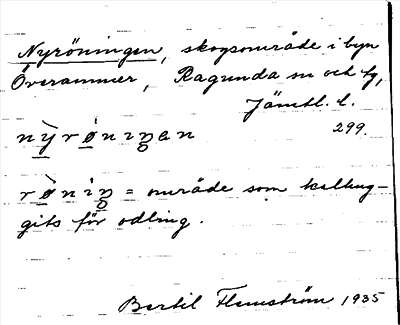 Nyröningen, skogsområde i byn
Överammer, Ragunda sn och tg,
Jämtl. l.
nỳrǿniŋen 299.
rø̀niŋ = område som kalhug-
gits för odling.
Bertil Flemström 1935